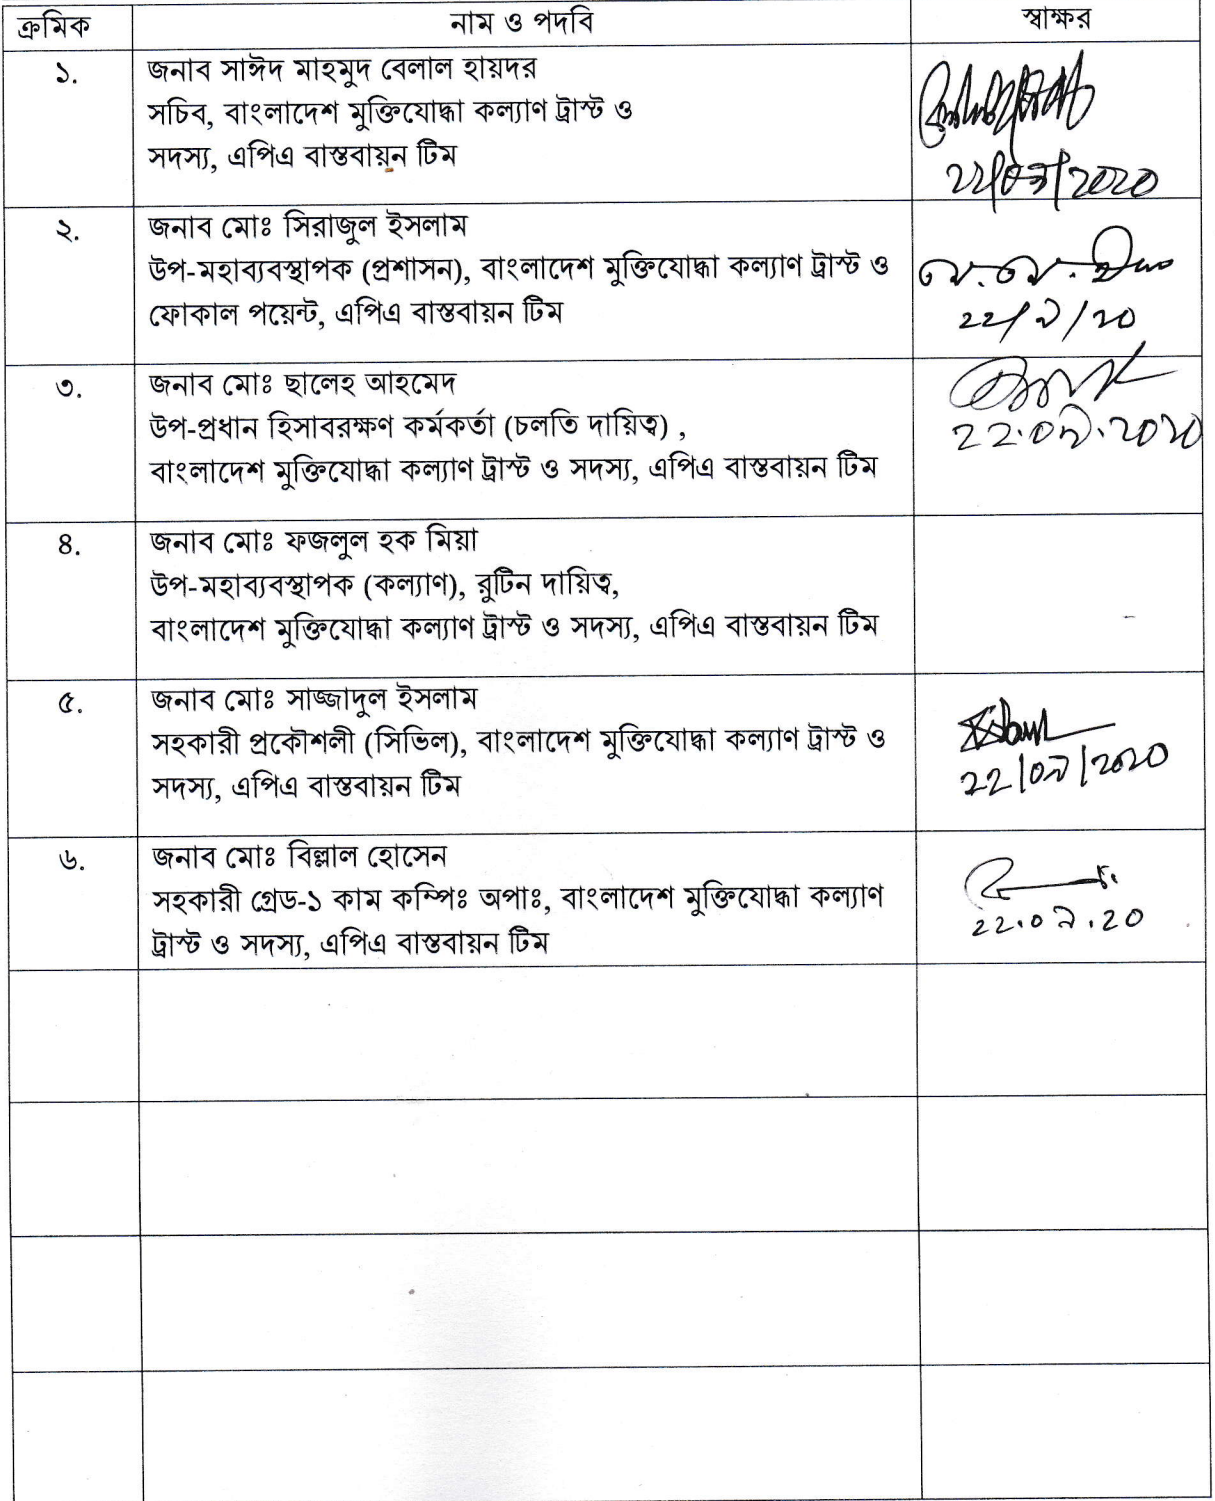 ক্রমিক নাম ও পদবি স্বাক্ষর
১. জনাব সাঈদ মাহমুদ বেলাল হায়দর
সচিব, বাংলাদেশ মুক্তিযোদ্ধা কল্যাণ ট্রাস্ট ও
সদস্য, এপিএ বাস্তবায়ন টিম
২২/০৯/২০২০
২. জনাব মোঃ সিরাজুল ইসলাম
উপ-মহাব্যবস্থাপক (প্রশাসন), বাংলাদেশ মুক্তিযোদ্ধা কল্যাণ ট্রাস্ট ও
ফোকাল পয়েন্ট, এপিএ বাস্তবায়ন টিম
২২/৯/২০
৩. জনাব মোঃ ছালেহ আহমেদ
উপ-প্রধান হিসাবরক্ষণ কর্মকর্তা (চলতি দায়িত্ব) ,
২২.০৯.২০২০
বাংলাদেশ মুক্তিযোদ্ধা কল্যাণ ট্রাস্ট ও সদস্য, এপিএ বাস্তবায়ন টিম
৪. জনাব মোঃ ফজলুল হক মিয়া
উপ-মহাব্যবস্থাপক (কল্যাণ), রুটিন দায়িত্ব,
বাংলাদেশ মুক্তিযোদ্ধা কল্যাণ ট্রাস্ট ও সদস্য, এপিএ বাস্তবায়ন টিম
৫. জনাব মোঃ সাজ্জাদুল ইসলাম
সহকারী প্রকৌশলী (সিভিল), বাংলাদেশ মুক্তিযোদ্ধা কল্যাণ ট্রাস্ট ও
সদস্য, এপিএ বাস্তবায়ন টিম
২২/০৯/২০২০
৬. জনাব মোঃ বিল্লাল হোসেন
সহকারী গ্রেড-১ কাম কম্পিঃ অপাঃ, বাংলাদেশ মুক্তিযোদ্ধা কল্যাণ
ট্রাস্ট ও সদস্য, এপিএ বাস্তবায়ন টিম
২২.০৯.২০